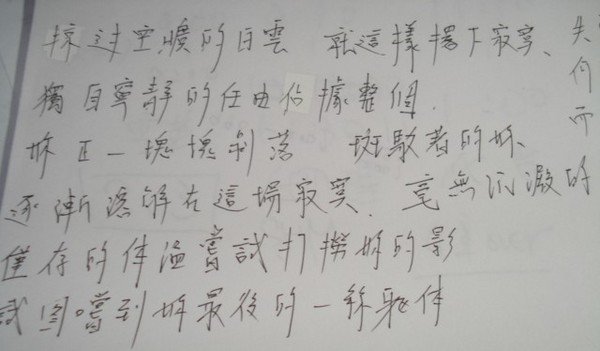 掠過空曠的白雲 就這樣撂下寂寞、失
獨自寧靜的任由佔據整個. 何
妳正一塊塊剝落 斑駁著的妳、 而
逐漸溶解在這場寂寞、毫無沉澱的
僅存的体溫嘗試打撈妳的影
試圖嚐到妳最後的一絲軀体